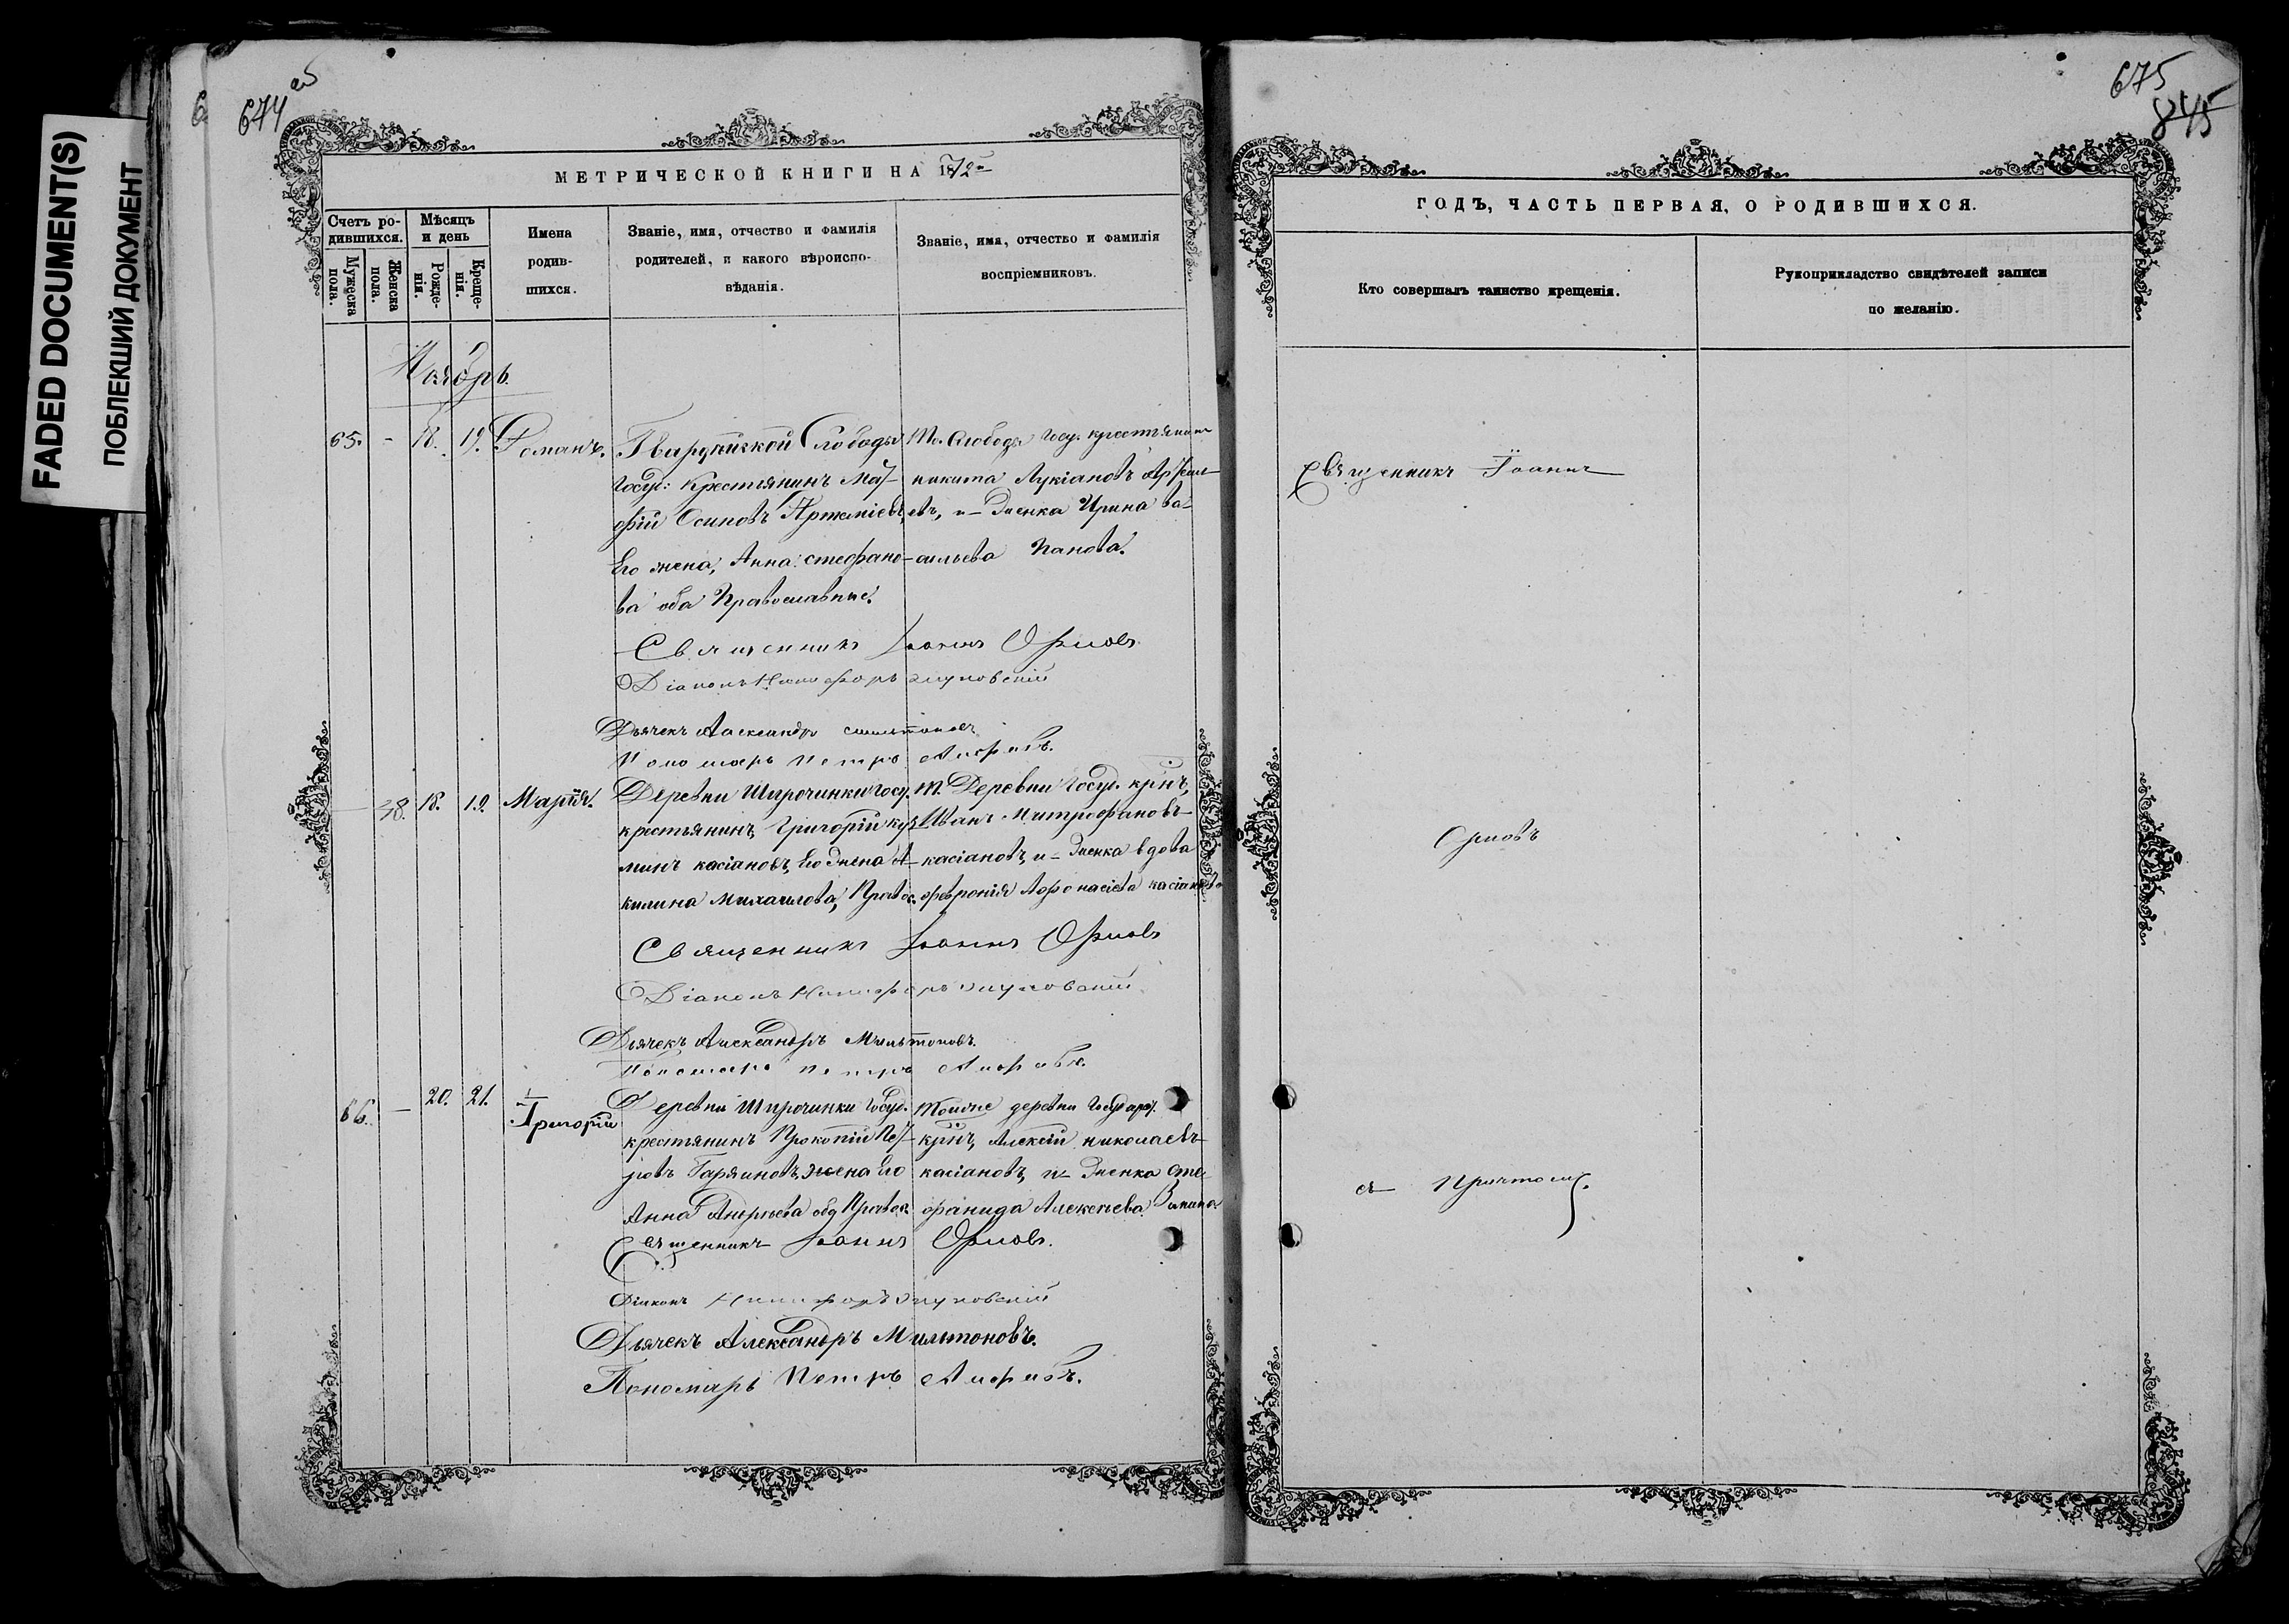 FADED DOCUMENT(S)
ПОБЛЕКШИЙ ДОКУМЕНТ
674 об
675
845
МЕТРИЧЕСКОЙ КНИГИ НА 1872
Счетъ родившихся.
Мужеска пола.
Женска пола.
Мѣсяцъ и день
Рожденія.
Крещенія.
Имена родившихся.
Званіе, имя, отчество и фамилія
родителей, и какого вѣроиспо-
вѣданія.
Званіе, имя, отчество и фамилія
воспріемниковъ.
Ноябрь
65. - 18. 19. Романъ.
Гвардейской Слободы
Госуд: Крестьянинъ Мат-
фій Осиповъ Артеміевъ,
Его жена, Анна Стефано-
ва оба Православные.
То. Слободы Госу. крестьянинъ
никита Лукіановъ Артеми-
евъ, и женка Ирина Ва-
сильева Панова.
Священникъ Іоаннъ Орловъ
Діаконъ Никифоръ
Дьячекъ Александръ Мильтоновъ
Пономарь Петръ
38. 18. 19. Марѳа.
Деревни Широчинки госу.
крестьянинъ Григорій Куз-
минъ касіановъ, Его жена А-
килина Михаилова, Правос.
Т. Деревни Госуд. крнъ,
Иванъ Митрофановъ
касіановъ, и женка вдова
февронія Афонасіева касіанова
Священникъ Іоаннъ Орловъ
Діаконъ Никифоръ
Дьячекъ Александръ Мильтоновъ.
Пономарь Петръ
66. - 20. 21. Григорій
Деревни Широчинки Госуд.
крестьянинъ Прокопій Пет-
ровъ Гаряиновъ, жена Его
Анна Андреева оба Правос.
Тоиже деревни Государ.
крнъ, Алексій николаевъ
касіановъ, и женка Сте-
фанида Алексеева Занина
Священникъ Іоаннъ Орловъ.
Діаконъ Никифоръ
Дьячекъ Александръ Мильтоновъ.
Пономарь Петръ
ГОДЪ, ЧАСТЬ ПЕРВАЯ, О РОДИВШИХСЯ.
Кто совершалъ таинство крещенія.
Рукоприкладство свидѣтелей записи
по желанію.
Священникъ Іоаннъ
Орловъ
съ Причтомъ.